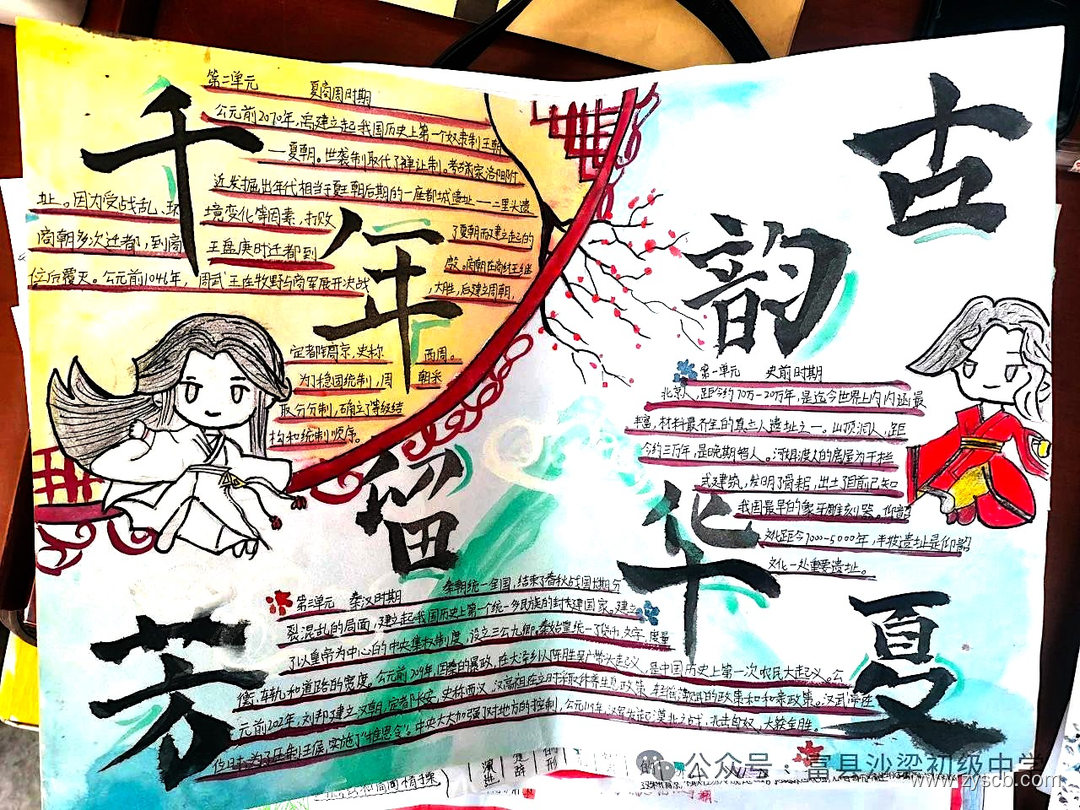 古韵华夏
千年留芳
第二单元 夏商周时期
公元前2070年,禹建立起我国历史上第一个奴隶制王朝
——夏朝。世袭制取代了禅让制。考古
近发掘出年代相当于夏王朝后期的一座都城遗址——二里头遗
址。因为受战乱、环境变化等因素,
商朝多次迁都,到商王盘庚时迁都到
了夏朝而建立起的
殷。商朝在商纣王继
位后覆灭。公元前1046年,周武王在牧野与商军展开决战
,大胜,后建立周朝,
定都镐京,史称西周。
为了稳固统制,周朝采
取分分制,确立了等级结
构和统制顺序。
第一单元 史前时期
北京人,距今约70万-20万年,是迄今世界上内涵最
丰富,材料最齐全的直立人遗址之一。山顶洞人,距
今约三万年,是晚期智人。河姆渡人的房屋为干栏
式建筑,发明了骨耜,出土了目前已知
我国最早的象牙雕刻器。仰韶
文化距今7000-5000年,半坡遗址是仰韶
文化一处重要遗址。
第三单元 秦汉时期
秦朝统一全国,结束了春秋战国长期分
裂混乱的局面,建立起我国历史上第一个统一多民族的封建国家。建立
了以皇帝为中心的中央集权制度,设立三公九卿。秦始皇统一了货币,文字,度量
衡,车轨和道路的宽度。公元前209年,因秦的暴政,在大泽乡以陈胜吴广带头起义,是中国历史上第一次农民大起义。公
元前202年,刘邦建立汉朝,定都长安,史称西汉,汉高祖在位时采取休养生息政策,轻徭薄赋的政策和和亲政策。汉武帝在
位时,为了压制王侯,实施了“推恩令”。中央大大加强了对地方的控制,公元119年,汉军发起漠北之战,北击匈奴,大获全胜。
公众号:富县沙梁初级中学
www.zyscb.com